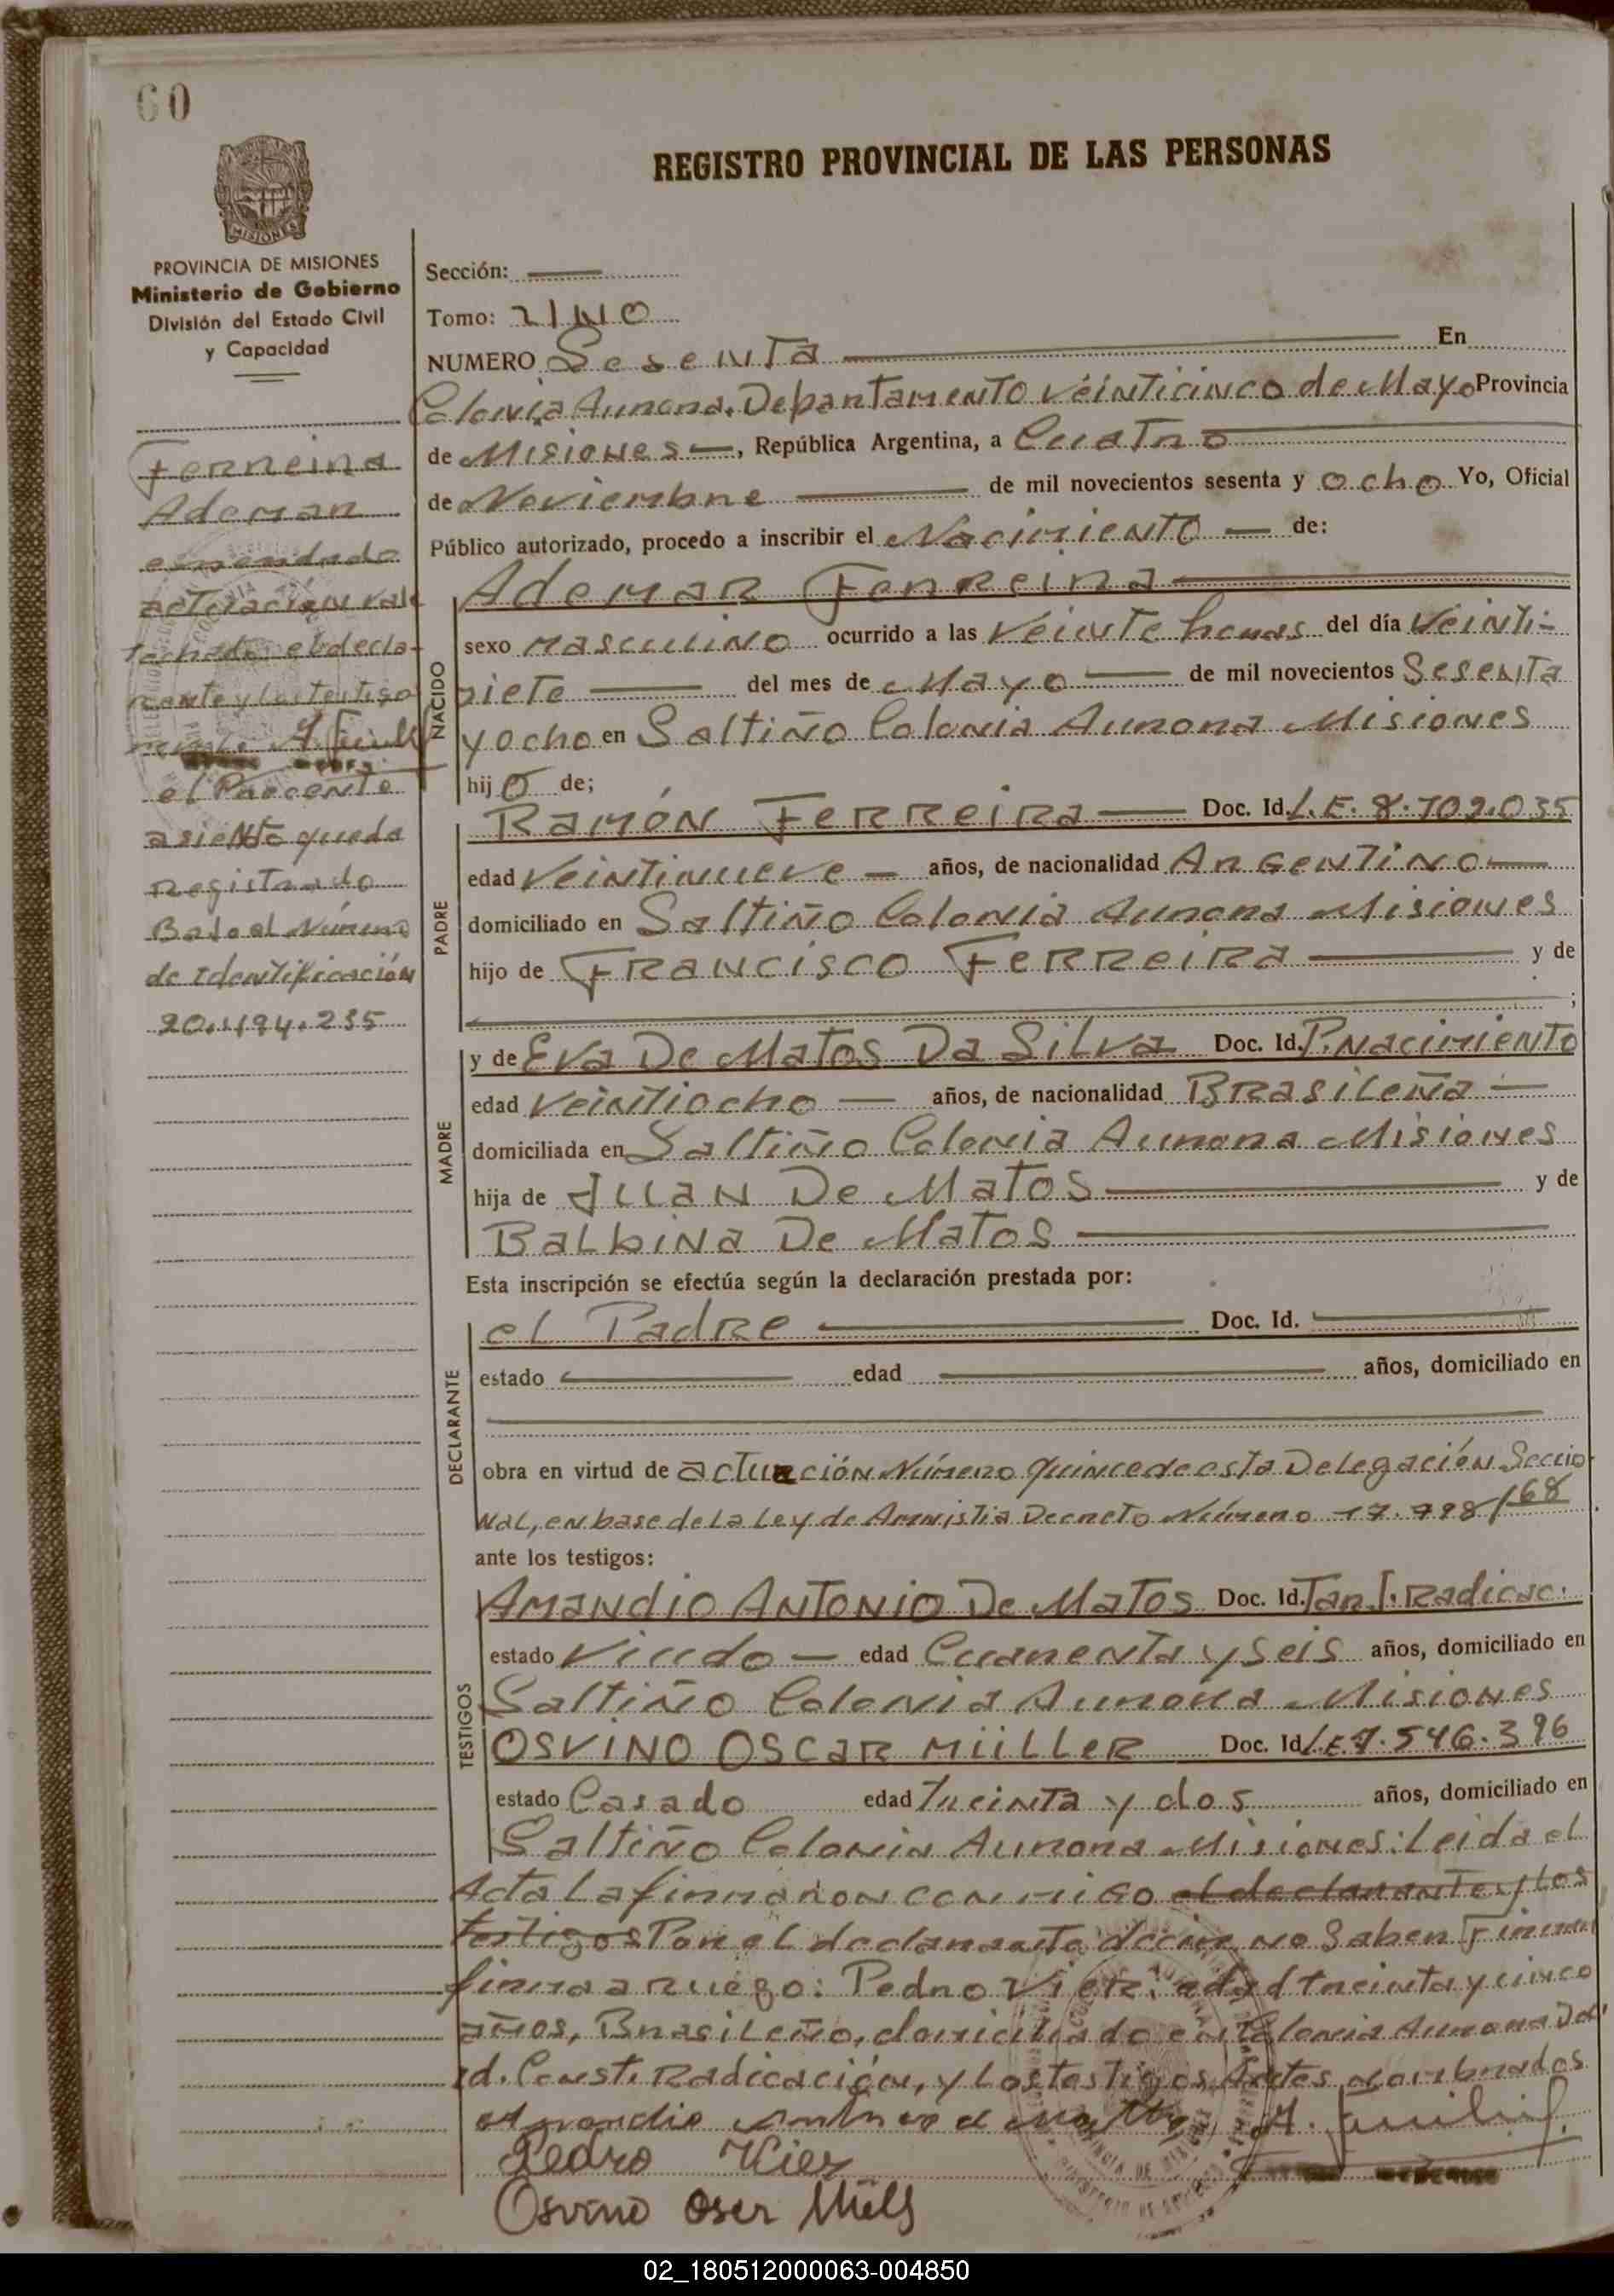 60
REGISTRO PROVINCIAL DE LAS PERSONAS
MISIONES
PROVINCIA DE MISIONES
Ministerio de Gobierno
División del Estado Civil
y Capacidad
Ferreira
Ademar
enmendado
actuación vale
tachado: el decla-
rante y los testigos
el Presente
asiento queda
Registrado
Bajo el Número
de Identificación
20.494.235
Sección:
Tomo: UNO
NUMERO Sesenta En
Colonia Aurora. Departamento Veinticinco de Mayo Provincia
de Misiones, República Argentina, a Cuatro
de Noviembre de mil novecientos sesenta y ocho Yo, Oficial
Público autorizado, procedo a inscribir el Nacimiento de:
NACIDO
Ademar Ferreira
sexo masculino ocurrido a las Veinte horas del día Veinti-
siete del mes de Mayo de mil novecientos Sesenta
y ocho en Saltiño Colonia Aurora Misiones
hijo de;
PADRE
Ramón Ferreira Doc. Id. L.E. 8.702.035
edad Veintinueve años, de nacionalidad Argentino
domiciliado en Saltiño Colonia Aurora Misiones
hijo de Francisco Ferreira y de
;
MADRE
y de Eva De Matos Da Silva Doc. Id. P. nacimiento
edad Veintiocho años, de nacionalidad Brasileña
domiciliada en Saltiño Colonia Aurora Misiones
hija de Juan De Matos y de
Balbina De Matos
Esta inscripción se efectúa según la declaración prestada por:
DECLARANTE
el Padre Doc. Id.
estado edad años, domiciliado en
obra en virtud de actuación Número quince de esta Delegación Seccio-
nal, en base de la Ley de Amnistia Decreto Número 17.798/68
ante los testigos:
TESTIGOS
Amandio Antonio De Matos Doc. Id. Tan I. Radicac.
estado Viudo edad Cuarenta y seis años, domiciliado en
Saltiño Colonia Aurora Misiones
Osvino Oscar Müller Doc. Id L.E 7.546.396
estado Casado edad Treinta y dos años, domiciliado en
Saltiño Colonia Aurora Misiones: Leida el
Acta La firmaron conmigo el declarante y los
testigos Por el declarante decir no Saben Firmar
firma a ruego: Pedro Vier: edad treinta y cinco
años, Brasileño, domiciliado en Colonia Aurora Do
id. Const. Radicación, y Los testigos Antes nombrados
Pedro Vier
Osvino
02_180512000063-004850